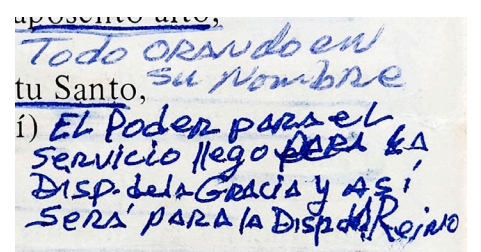 aposento alto,
Todo ORANdo en
su Nombre
tu Santo,
í) EL Poder para el
Servicio llego PARA LA
Disp. de la GRACIA y Así
Será PARA la Disp del Reino